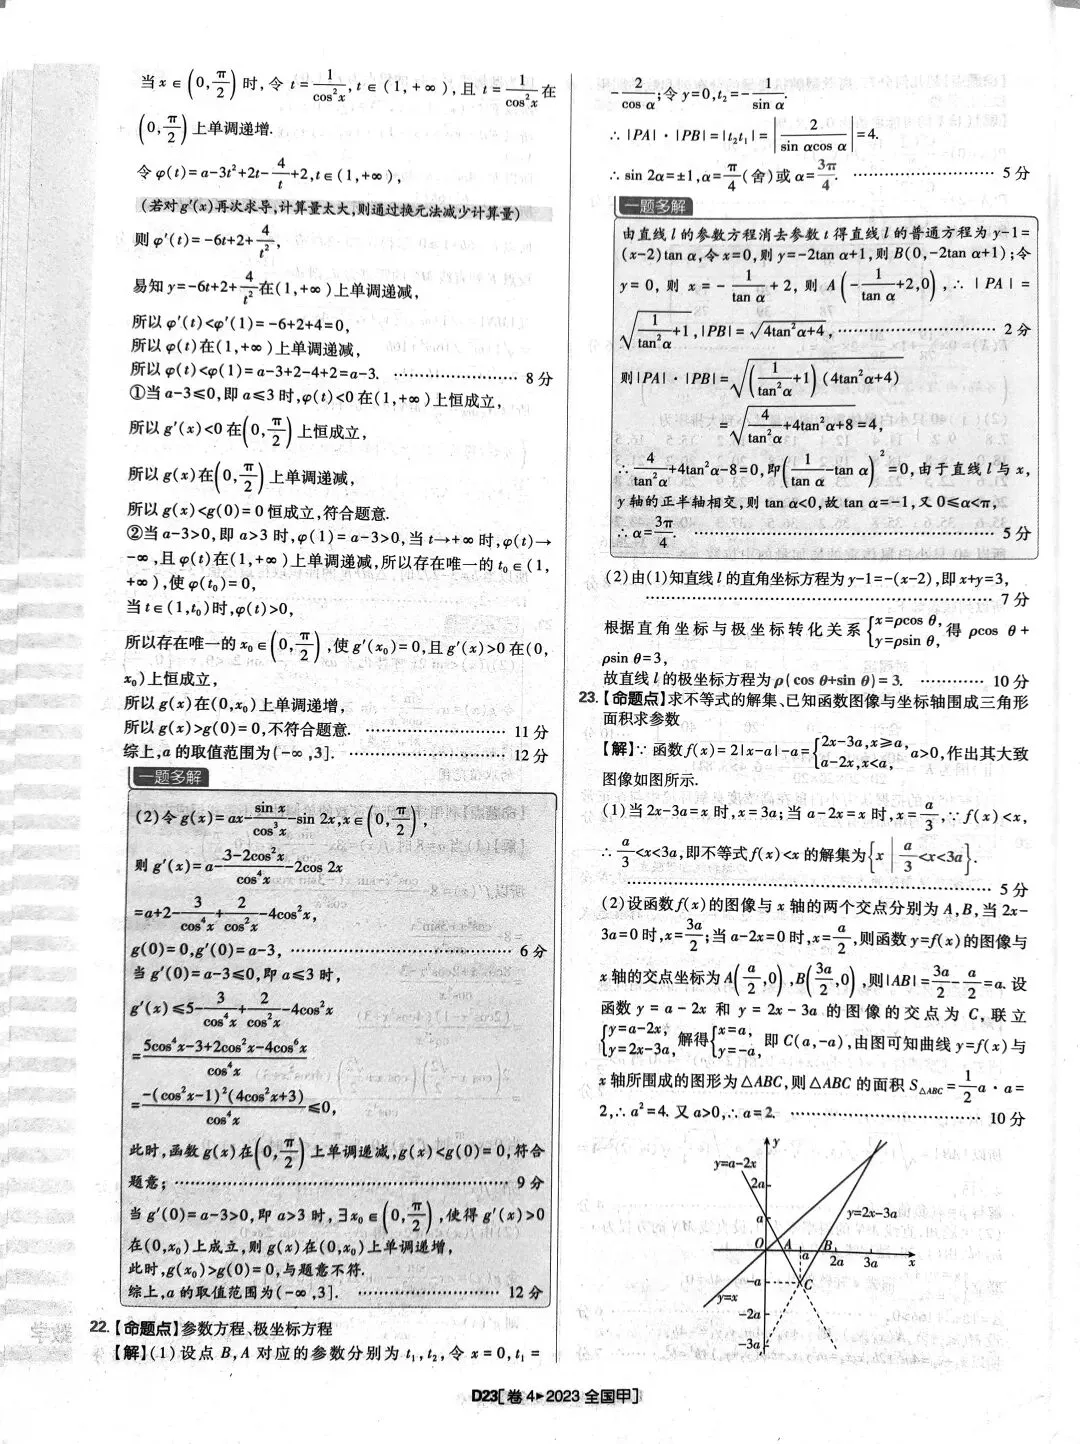 当x∈(0,π/2)时,令 t=1/cos²x,t∈(1,+∞),且 t=1/cos²x在
(0,π/2)上单调递增.
令φ(t)=a-3t²+2t-4/t+2,t∈(1,+∞),
(若对g′(x)再次求导,计算量太大,则通过换元法减少计算量)
则φ′(t)=-6t+2+4/t²,
易知y=-6t+2+4/t²在(1,+∞)上单调递减,
所以φ′(t)<φ′(1)=-6+2+4=0,
所以φ(t)在(1,+∞)上单调递减,
所以φ(t)<φ(1)=a-3+2-4+2=a-3. ………………… 8分
①当a-3≤0,即a≤3时,φ(t)<0在(1,+∞)上恒成立,
所以g′(x)<0在(0,π/2)上恒成立,
所以g(x)在(0,π/2)上单调递减,
所以g(x)<g(0)=0恒成立,符合题意.
②当a-3>0,即a>3时,φ(1)=a-3>0,当t→+∞时,φ(t)→
-∞,且φ(t)在(1,+∞)上单调递减,所以存在唯一的t₀∈(1,
+∞),使φ(t₀)=0,
当t∈(1,t₀)时,φ(t)>0,
所以存在唯一的x₀∈(0,π/2),使g′(x₀)=0,且g′(x)>0在(0,
x₀)上恒成立,
所以g(x)在(0,x₀)上单调递增,
所以g(x)>g(0)=0,不符合题意. …………………… 11分
综上,a的取值范围为(-∞,3]. …………………… 12分
一题多解
(2)令g(x)=ax-sin x/cos³x-sin 2x,x∈(0,π/2),
则g′(x)=a-(3-2cos²x)/cos⁴x-2cos 2x
=a+2-3/cos⁴x+2/cos²x-4cos²x,
g(0)=0,g′(0)=a-3, …………………………… 6分
当g′(0)=a-3≤0,即a≤3时,
g′(x)≤5-3/cos⁴x+2/cos²x-4cos²x
=(5cos⁴x-3+2cos²x-4cos⁶x)/cos⁴x
=-(cos²x-1)²(4cos²x+3)/cos⁴x≤0,
此时,函数g(x)在(0,π/2)上单调递减,g(x)<g(0)=0,符合
题意; ……………………………………………… 9分
当g′(0)=a-3>0,即a>3时,∃x₀∈(0,π/2),使得g′(x)>0
在(0,x₀)上成立,则g(x)在(0,x₀)上单调递增,
此时,g(x₀)>g(0)=0,与题意不符.
综上,a的取值范围为(-∞,3]. …………………… 12分
22.【命题点】参数方程、极坐标方程
【解】(1)设点B,A对应的参数分别为t₁,t₂,令x=0,t₁=
-2/cos α;令y=0,t₂=-1/sin α.
∴|PA|·|PB|=|t₂t₁|=|2/(sin αcos α)|=4.
∴sin 2α=±1,α=π/4(舍)或α=3π/4. …………………… 5分
一题多解
由直线l的参数方程消去参数t得直线l的普通方程为y-1=
(x-2)tan α,令x=0,则y=-2tan α+1,则B(0,-2tan α+1);令
y=0,则x=-1/tan α+2,则A(-1/tan α+2,0),∴|PA|=
√(1/tan²α+1),|PB|=√(4tan²α+4), …………………… 2分
则|PA|·|PB|=√((1/tan²α+1)(4tan²α+4))
=√(4/tan²α+4tan²α+8)=4,
∴4/tan²α+4tan²α-8=0,即(1/tan α-tan α)²=0,由于直线l与x,
y轴的正半轴相交,则tan α<0,故tan α=-1,又0≤α<π,
∴α=3π/4. ……………………………………………… 5分
(2)由(1)知直线l的直角坐标方程为y-1=-(x-2),即x+y=3,
……………………………………………………… 7分
根据直角坐标与极坐标转化关系{x=ρcos θ, y=ρsin θ,得ρcos θ+
ρsin θ=3,
故直线l的极坐标方程为ρ(cos θ+sin θ)=3. ………… 10分
23.【命题点】求不等式的解集、已知函数图像与坐标轴围成三角形
面积求参数
【解】∵函数f(x)=2|x-a|-a={2x-3a,x≥a, a-2x,x<a, a>0,作出其大致
图像如图所示.
(1)当2x-3a=x时,x=3a;当a-2x=x时,x=a/3,∵f(x)<x,
∴a/3<x<3a,即不等式f(x)<x的解集为{x|a/3<x<3a}.
……………………………………………………… 5分
(2)设函数f(x)的图像与x轴的两个交点分别为A,B,当2x-
3a=0时,x=3a/2;当a-2x=0时,x=a/2,则函数y=f(x)的图像与
x轴的交点坐标为A(a/2,0),B(3a/2,0),则|AB|=3a/2-a/2=a.设
函数y=a-2x和y=2x-3a的图像的交点为C,联立
{y=a-2x, y=2x-3a,解得{x=a, y=-a,即C(a,-a),由图可知曲线y=f(x)与
x轴所围成的图形为△ABC,则△ABC的面积S△ABC=1/2a·a=
2,∴a²=4.又a>0,∴a=2. …………………………… 10分
y
y=a-2x
2a
a
y=2x-3a
O A a B 2a 3a x
-a C
y=x
-2a
-3a
D23[卷4▸2023全国甲]
数学